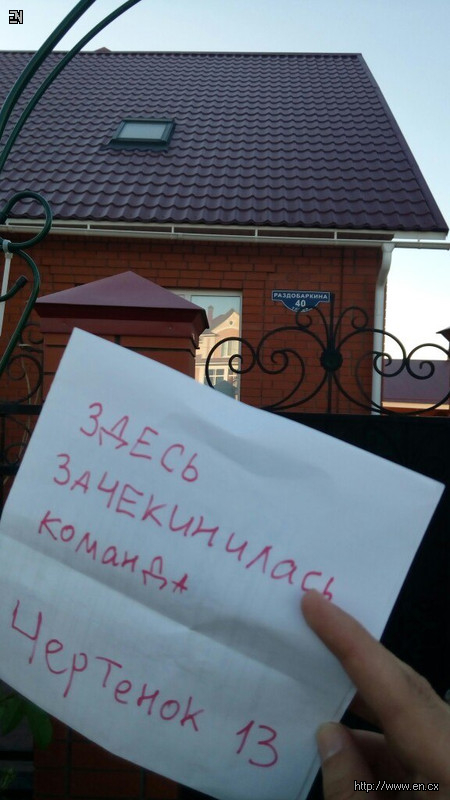 EN
РАЗДОБАРКИНА
40
ЗДЕСЬ
ЗАЧЕКИНИЛАСЬ
КОМАНДА
ЧЕРТЕНОК 13
http://www.en.cx